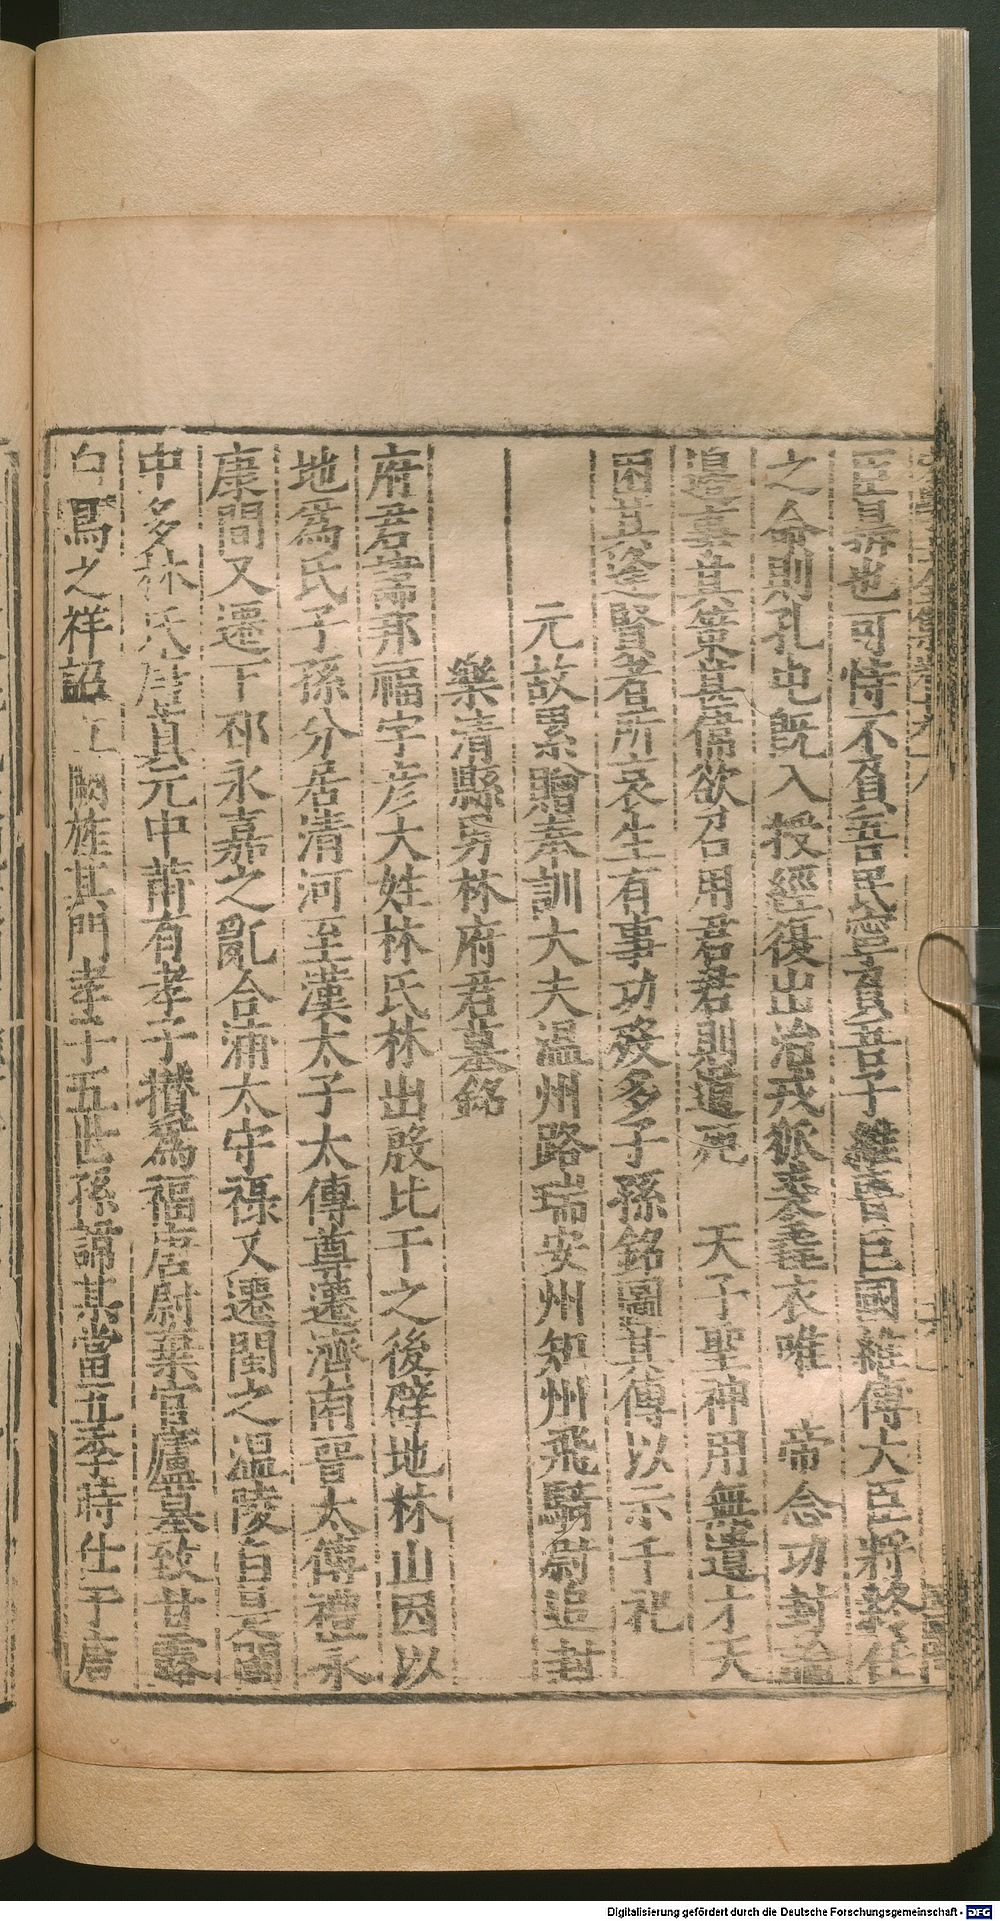 臣是弗也可恃不負吾民寧負吾子維昔巨國維傳大臣將終任
之命則孔屯既入授經復出治戎狐裘毳衣唯 帝念功封
邊事其策甚儒欲召用君君則遄死 天子聖神用無遺才天
困其逢賢者所哀生有事功歿多子孫銘圖其傳以示千祀
元故累贈奉訓大夫溫州路瑞安州知州飛騎尉追封
樂清縣男林府君墓銘
府君諱那福字彥大姓林氏林出殷比干之後辟地林山因以
地爲氏子孫分居清河至漢太子太傅尊遷濟南晉太傅禮永
康間又遷下邳永嘉之亂合浦太守祿又遷閩之溫陵自是閩
中多林氏唐貞元中莆有孝子攢爲福唐尉棄官廬墓致甘露
白烏之祥詔立闕旌其門孝子五世孫諱某當五季時仕于唐
Digitalisierung gefördert durch die Deutsche Forschungsgemeinschaft - DFG